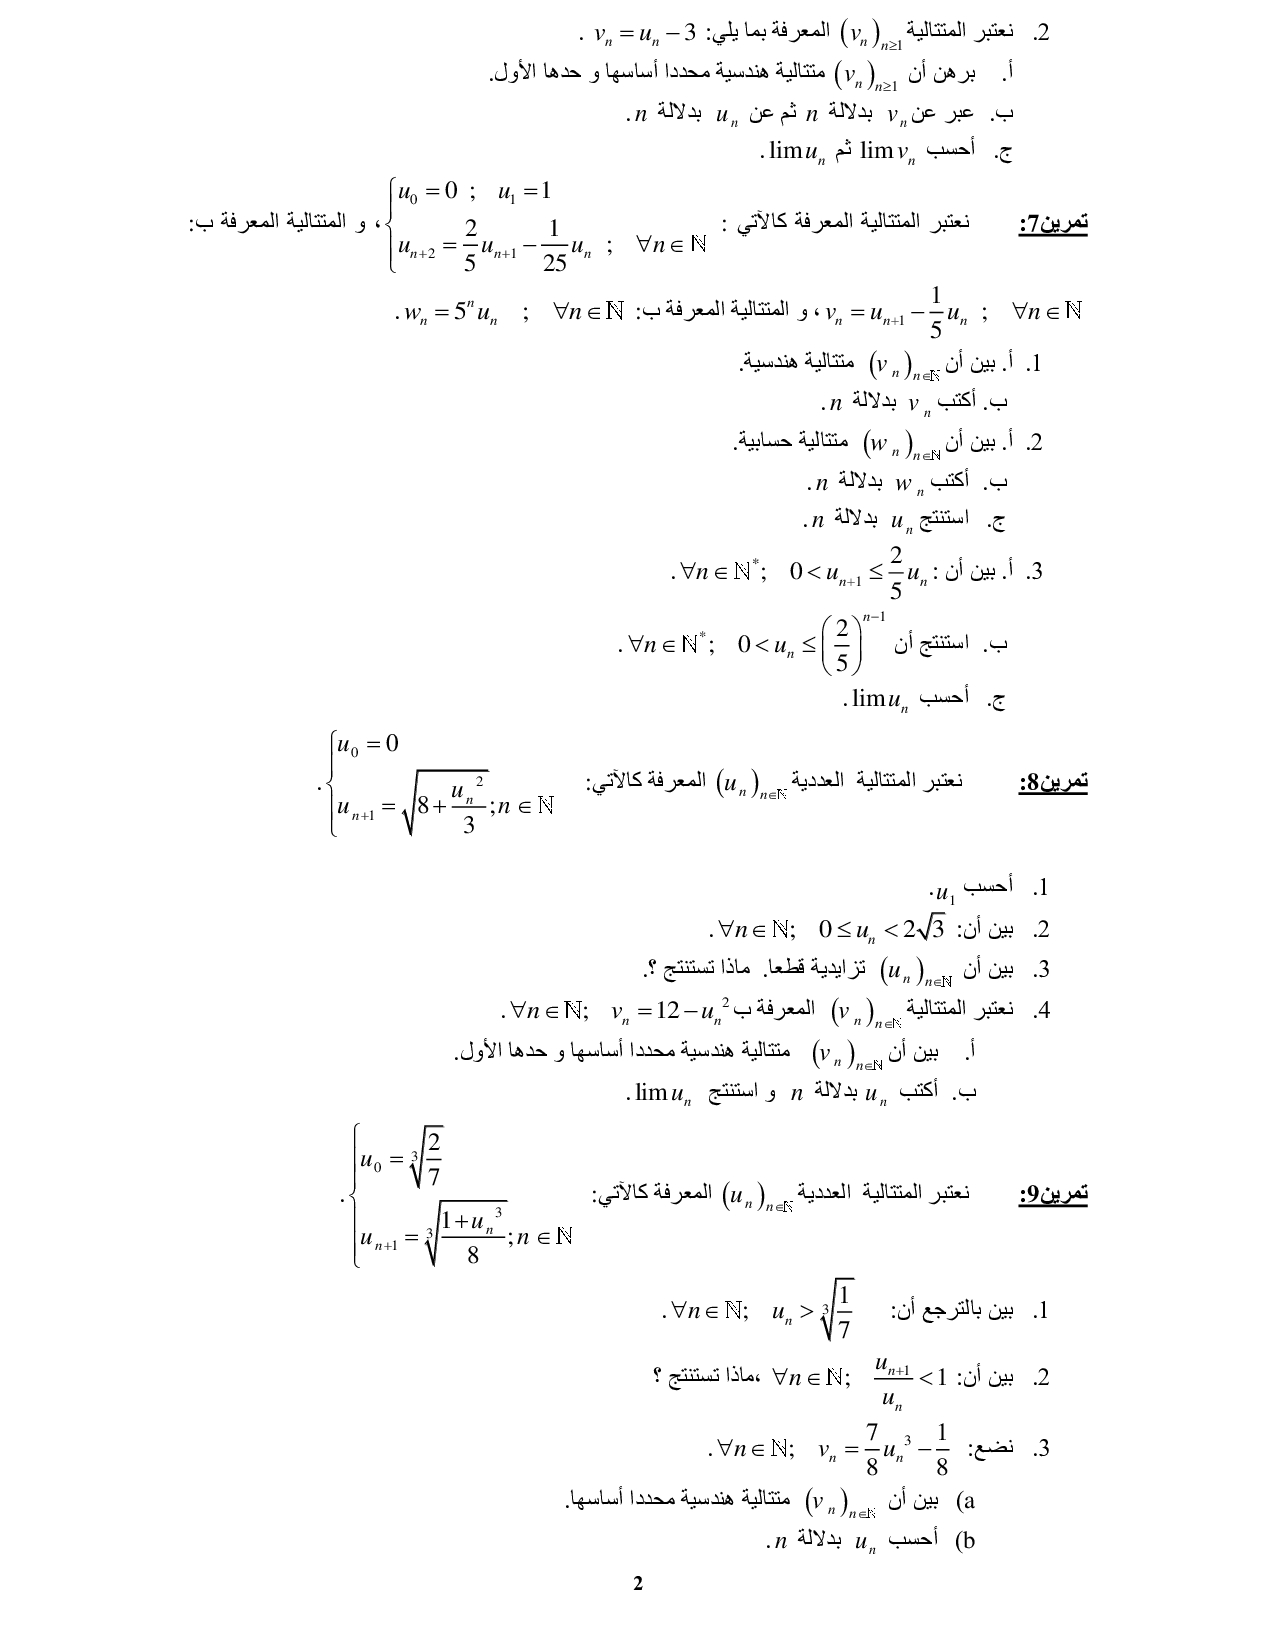 2. نعتبر المتتالية (v_n)_{n≥1} المعرفة بما يلي: v_n = u_n − 3 .
أ. برهن أن (v_n)_{n≥1} متتالية هندسية محددا أساسها و حدها الأول.
ب. عبر عن v_n بدلالة n ثم عن u_n بدلالة n .
ج. أحسب lim v_n ثم lim u_n .
تمرين7: نعتبر المتتالية المعرفة كالآتي : { u_0 = 0 ; u_1 = 1 , u_{n+2} = 2/5 u_{n+1} − 1/25 u_n ; ∀n ∈ ℕ ، و المتتالية المعرفة ب:
v_n = u_{n+1} − 1/5 u_n ; ∀n ∈ ℕ ، و المتتالية المعرفة ب: w_n = 5^n u_n ; ∀n ∈ ℕ .
1. أ. بين أن (v_n)_{n∈ℕ} متتالية هندسية.
ب. أكتب v_n بدلالة n .
2. أ. بين أن (w_n)_{n∈ℕ} متتالية حسابية.
ب. أكتب w_n بدلالة n .
ج. استنتج u_n بدلالة n .
3. أ. بين أن : ∀n ∈ ℕ*; 0 < u_{n+1} ≤ 2/5 u_n .
ب. استنتج أن ∀n ∈ ℕ*; 0 < u_n ≤ (2/5)^{n−1} .
ج. أحسب lim u_n .
تمرين8: نعتبر المتتالية العددية (u_n)_{n∈ℕ} المعرفة كالآتي: { u_0 = 0 , u_{n+1} = √(8 + u_n²/3) ; n ∈ ℕ .
1. أحسب u_1 .
2. بين أن: ∀n ∈ ℕ; 0 ≤ u_n < 2√3 .
3. بين أن (u_n)_{n∈ℕ} تزايدية قطعا. ماذا تستنتج ؟.
4. نعتبر المتتالية (v_n)_{n∈ℕ} المعرفة ب ∀n ∈ ℕ; v_n = 12 − u_n² .
أ. بين أن (v_n)_{n∈ℕ} متتالية هندسية محددا أساسها و حدها الأول.
ب. أكتب u_n بدلالة n و استنتج lim u_n .
تمرين9: نعتبر المتتالية العددية (u_n)_{n∈ℕ} المعرفة كالآتي: { u_0 = ∛(2/7) , u_{n+1} = ∛((1 + u_n³)/8) ; n ∈ ℕ .
1. بين بالترجع أن: ∀n ∈ ℕ; u_n > ∛(1/7) .
2. بين أن: ∀n ∈ ℕ; u_{n+1}/u_n < 1 ،ماذا تستنتج ؟
3. نضع: ∀n ∈ ℕ; v_n = 7/8 u_n³ − 1/8 .
a) بين أن (v_n)_{n∈ℕ} متتالية هندسية محددا أساسها.
b) أحسب u_n بدلالة n .
2